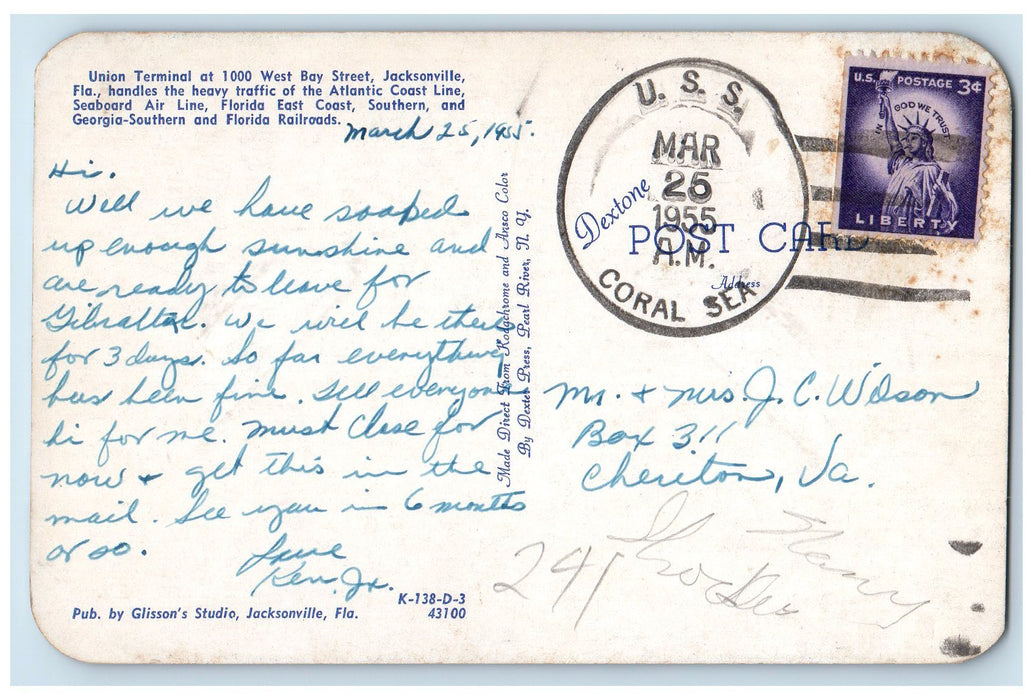 Union Terminal at 1000 West Bay Street, Jacksonville,
Fla., handles the heavy traffic of the Atlantic Coast Line,
Seaboard Air Line, Florida East Coast, Southern, and
Georgia-Southern and Florida Railroads.
March 25, 1955.
Hi.
Well we have soaped
up enough sunshine and
are ready to leave for
Gibraltar. We will be there
for 3 days. So far everything
has been fine. Tell everyone
hi for me. Must close for
now + get this in the
mail. See you in 6 months
or so.
Love
Ken. Jr.
K-138-D-3
Pub. by Glisson's Studio, Jacksonville, Fla. 43100
Made Direct From Kodachrome and Ansco Color
By Dexter Press, Pearl River, N. Y.
U.S.S.
MAR
25
1955
A.M.
CORAL SEA
Dextone
POST CARD
Address
U.S. POSTAGE 3¢
IN GOD WE TRUST
LIBERTY
Mr. + Mrs. J. C. Wilson
Box 311
Cheriton, Va.
241